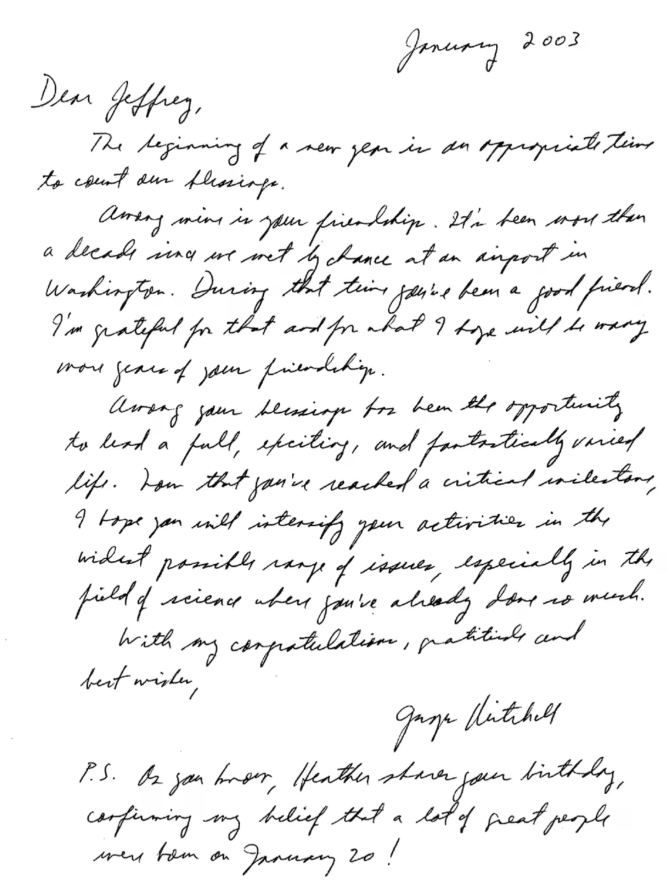 January 2003
Dear Jeffrey,
The beginning of a new year is an appropriate time
to count our blessings.
Among mine is your friendship. It's been more than
a decade since we met by chance at an airport in
Washington. During that time you've been a good friend.
I'm grateful for that and for what I hope will be many
more years of your friendship.
Among your blessings has been the opportunity
to lead a full, exciting, and fantastically varied
life. Now that you've reached a critical milestone,
I hope you will intensify your activities in the
widest possible range of issues, especially in the
field of science where you've already done so much.
With my congratulations, gratitude and
best wishes,
George Mitchell
P.S. As you know, Heather shares your birthday,
confirming my belief that a lot of great people
were born on January 20!